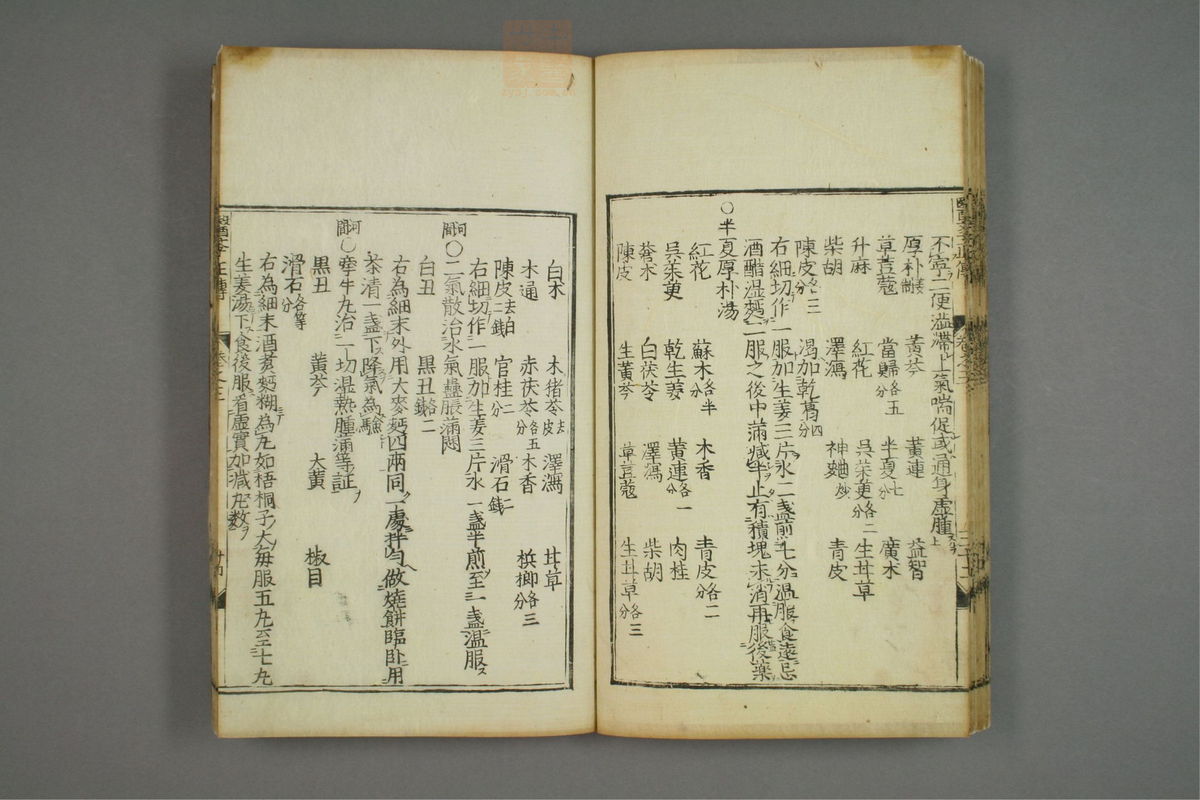 不寧二便澁滯上氣喘促或通身虛腫
厚朴 黃芩 黃連 益智
草荳蔲 當歸各五分 半夏七分 廣木
升麻 紅花 吳茱萸各二分 生甘草
柴胡 澤瀉 神麯炒 青皮
陳皮各三分 渴加乾葛四分
右細切作一服加生姜三片水二盞煎七分温服食遠忌
酒醋湿麪二服之後中滿減半止有積塊未消再服後藥
○半夏厚朴湯
紅花 蘇木各半分 木香 青皮各二分
吳茱萸 乾生姜 黃連各一分 肉桂
蒼木 白茯苓 澤瀉 柴胡
陳皮 生黃芩 草荳蔲 生甘草各三分
白朮 木猪苓去皮 澤瀉 甘草
木通 赤茯苓各五分 木香 檳榔各三分
陳皮去白二錢 官桂二分 滑石二錢
右細切作一服加生姜三片水一盞半煎至一盞温服
河間○二氣散治水氣蠱脹滿悶
白丑 黑丑各二錢
右為細末外用大麥麪四兩同一處拌勻做燒餅臨卧用
茶清一盞下降氣為驗
河間○牽牛丸治一切湿熱腫滿等証
黑丑 黃芩 大黃 椒目
滑石各等分
右為細末酒煑麪糊為丸如梧桐子大每服五丸至七丸
生姜湯下食後服看虛實加減丸數